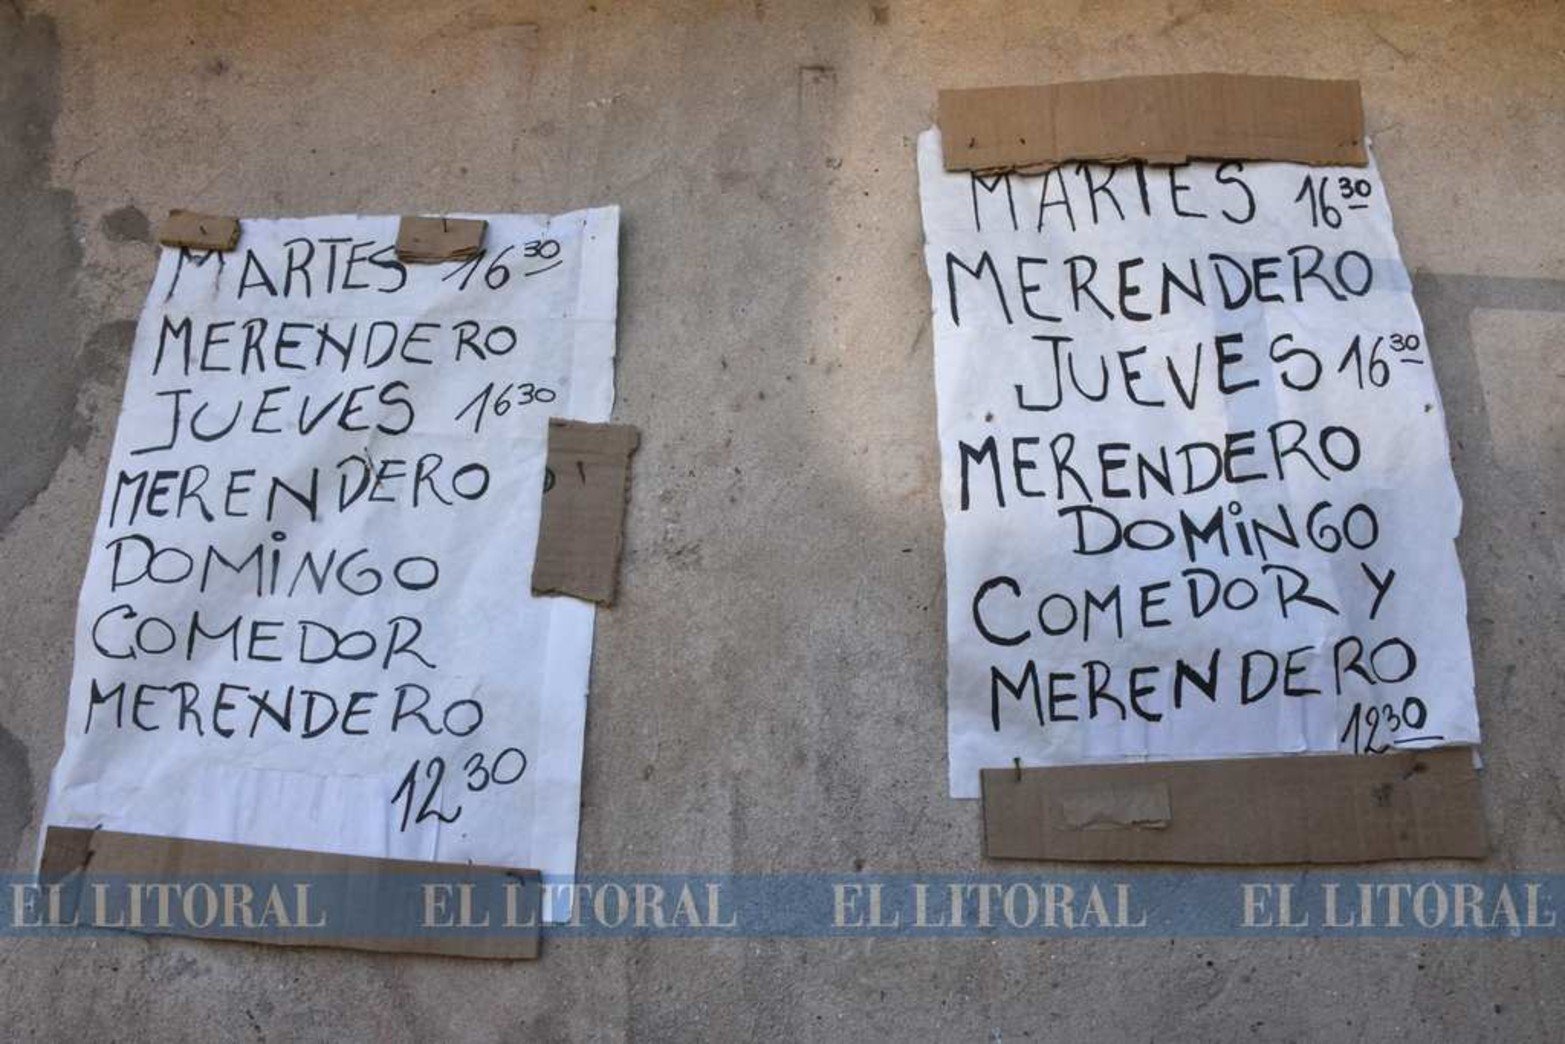 MARTES 16 30
MERENDERO
JUEVES 16 30
MERENDERO
DOMiNGO
COMEDOR
MERENDERO
12 30
MARTES 16 30
MERENDERO
JUEVES 16 30
MERENDERO
DOMiNGO
COMEDOR Y
MERENDERO
12 30
EL LITORAL EL LITORAL EL LITORAL EL LITORAL